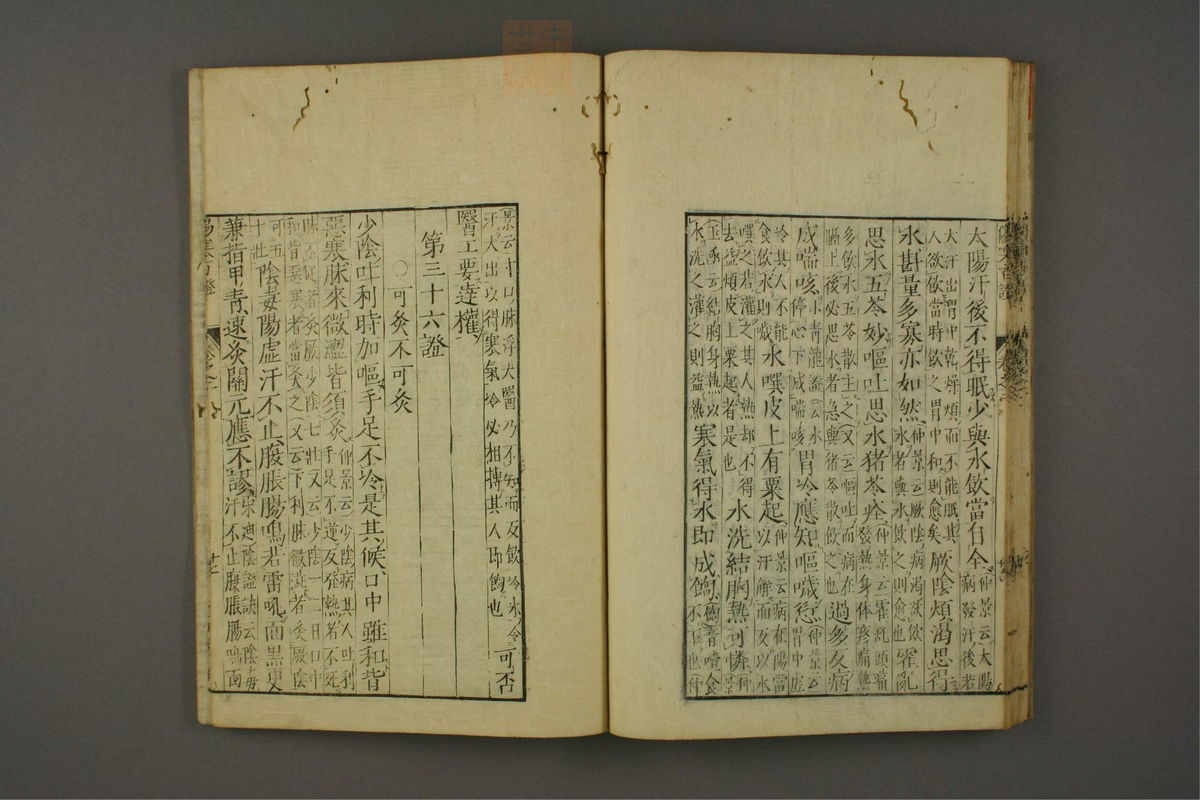 太陽汗後不得眠少與水飲當自全仲景云太陽病發汗後若
大汗出胃中乾燥煩而不能眠其人欲飲當時飲之胃中和則愈矣厥陰煩渴思得
水斟量多寡亦如然仲景云厥陰病渴欲飲水者與水飲之則愈也霍亂
思水五苓妙嘔吐思水猪苓痊仲景云霍亂頭痛發熱身体疼痛熱
多飲水五苓散主之又云嘔吐而病在膈上後必思水者急與猪苓散飲之過多反病
成喘咳小青龍證云水停心下成喘咳胃冷應知嘔噦愆仲景云胃中虛
冷其人不能食飲水則噦水噀皮上有粟起仲景云病在陽當以汗解而反以水
噀之若灌之其人熱却不得去益煩皮上粟起者是也水洗結胸熱可憐仲景
玉函云結胸身熱以水洗之灌之則益熱寒氣得水即成䭇䭇音噎食不下也仲
景云寸口脉浮大醫乃不知而反飲冷水令汗大出以得寒氣冷必相搏其人即䭇也可否
醫工要達權
第三十六證
○可灸不可灸
少陰吐利時加嘔手足不冷是其候口中雖和背
惡寒脉來微澀皆須灸仲景云少陰病其人吐利手足不逆反發熱若不死
脉不足者灸厥少陰七壯又云少陰一二日口中和背惡寒者當灸之又云下利脉微澀者灸厥陰
可五十壯陰毒陽虛汗不止腹脹腸鳴若雷吼面黑更
兼指甲青速灸關元應不謬宋迪陰證訣云陰毒汗不止腹脹腸鳴面